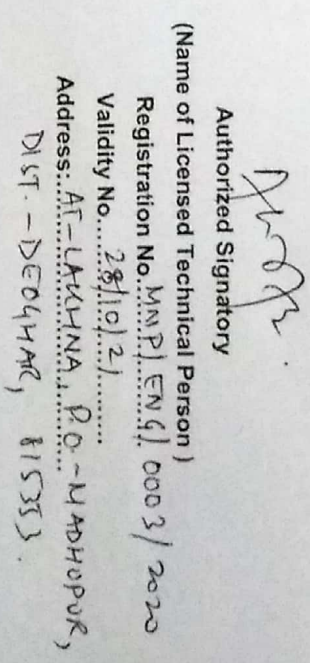 Authorized Signatory
(Name of Licensed Technical Person )
Registration No. MNP/ENG/0003/2020
Validity No. 28/10/21
Address: AT-LAKHNA, P.O-MADHUPUR,
DIST.-DEOGHAR, 815353.